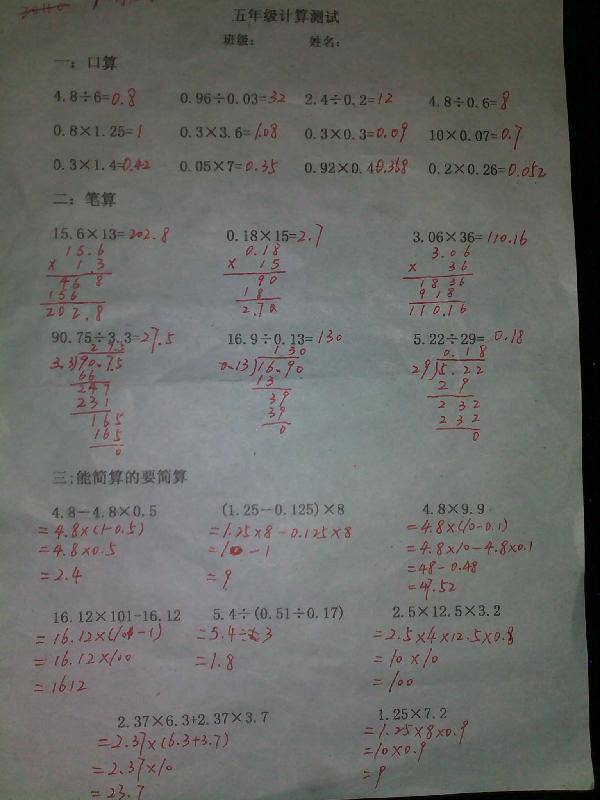 五年级计算测试
班级： 姓名：
一：口算
4.8÷6=0.8 0.96÷0.03=32 2.4÷0.2=12 4.8÷0.6=8
0.8×1.25=1 0.3×3.6=1.08 0.3×0.3=0.09 10×0.07=0.7
0.3×1.4=0.42 0.05×7=0.35 0.92×0.4=0.368 0.2×0.26=0.052
二：笔算
15.6×13=202.8 0.18×15=2.7 3.06×36=110.16
15.6 0.18 3.06
× 1.3 × 15 × 36
46 8 90 18 36
156 18 91 8
202.8 2.70 110.16
90.75÷3.3=27.5 16.9÷0.13=130 5.22÷29=0.18
27.5 130 0.18
3.3)90.75 0.13)16.90 29)5.22
66 13 2 9
247 39 2 32
231 39 2 32
165 0 0
165
0
三:能简算的要简算
4.8-4.8×0.5 (1.25-0.125)×8 4.8×9.9
=4.8×(1-0.5) =1.25×8-0.125×8 =4.8×(10-0.1)
=4.8×0.5 =10-1 =4.8×10-4.8×0.1
=2.4 =9 =48-0.48
=47.52
16.12×101-16.12 5.4÷(0.51÷0.17) 2.5×12.5×3.2
=16.12×(101-1) =5.4÷3 =2.5×4×12.5×0.8
=16.12×100 =1.8 =10×10
=1612 =100
2.37×6.3+2.37×3.7 1.25×7.2
=2.37×(6.3+3.7) =1.25×8×0.9
=2.37×10 =10×0.9
=23.7 =9